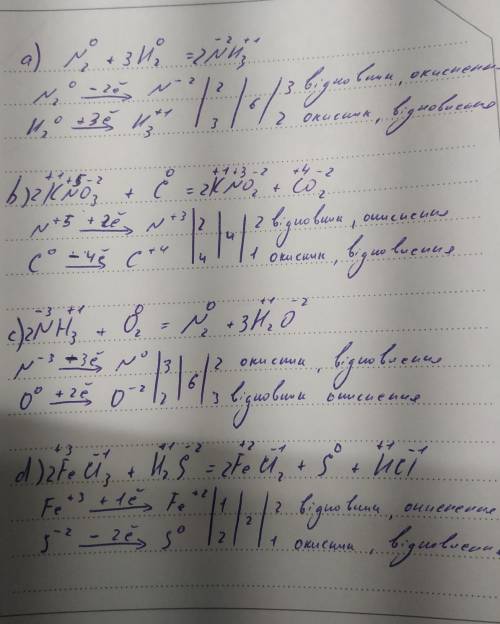 a) N₂⁰ + 3H₂⁰ = 2N⁻²H₃⁺¹
N₂⁰ —2ē→ N⁻² | 2 | 6 | 3 відновник, окиснення
H₂⁰ +3ē→ H₃⁺¹ | 3 | | 2 окисник, відновлення
b) 2K⁺¹N⁺⁵O₃⁻² + C⁰ = 2K⁺¹N⁺³O₂⁻² + C⁺⁴O₂⁻²
N⁺⁵ +2ē→ N⁺³ | 2 | 4 | 2 відновник, окиснення
C⁰ —4ē→ C⁺⁴ | 4 | | 1 окисник, відновлення
c) 2N⁻³H₃⁺¹ + O₂⁰ = N₂⁰ + 3H₂⁺¹O⁻²
N⁻³ —3ē→ N⁰ | 3 | 6 | 2 окисник, відновлення
O⁰ +2ē→ O⁻² | 2 | | 3 відновник окиснення
d) 2Fe⁺³Cl₃⁻¹ + H₂⁺¹S⁻² = 2Fe⁺²Cl₂⁻¹ + S⁰ + H⁺¹Cl⁻¹
Fe⁺³ +1ē→ Fe⁺² | 1 | 2 | 2 відновник, окиснення
S⁻² —2ē→ S⁰ | 2 | | 1 окисник, відновлення